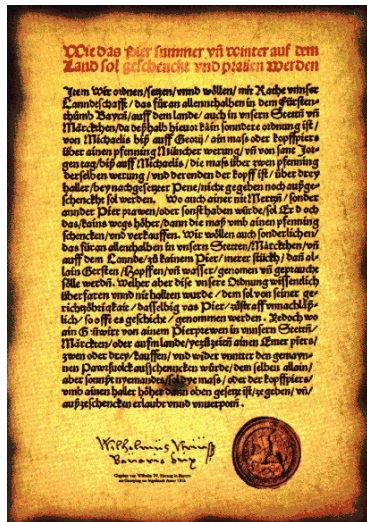 Wie das Pier summer vñ winter auf dem
Land sol geschenckt vnd prauen werden
Item Wir ordnen/setzen/vnnd wöllen/mit Rathe vnnser
Lanndtschafft/das für an allennthalben in dem Fürsten-
thůmb Bayrn/auff dem lande/auch in vnsern Stettñ vñ
Märckthen/da deßhalb hieuor kain sonndere ordnung ist/
von Michaelis biß auff Georij/ain mass oder kopffpiers
über ainen pfenning Müncher werung/vñ von sant Jor-
gen tag/biß auff Michaelis/die mass über zwen pfenning
derselben werung/vnd derenden der kopff ist/über drey
haller/bey nachgesetzter Pene/nicht gegeben noch außge-
schenckht sol werden. Wo auch ainer nit Mertzñ/sonder
annder Pier prawen/oder sonst haben würde/sol Er doch
das/kains wegs höher/dann die mass vmb ainen pfenning
schencken/vnd verkauffen. Wir wöllen auch sonderlichen/
das für an allenthalben in vnsern Stetten/Märckthen/vñ
auff dem Lannde/zů kainem Pier/merer stückh/dañ al-
lain Gersten/Hopffen/vñ wasser/genomen vñ gepraucht
sölle werdñ. Welher aber dise vnsere Ordnung wissendlich
überfaren vnnd nit hallten wurde/dem sol von seiner ge-
richtzöbrigkait/dasselbig vas Pier/zůstraff vnnachläß-
lich/so offt es geschicht/genommen werden. Jedoch wo
ain Gůwirt von ainem Pierprewen in vnnsern Stettñ
Märckten/oder aufm lande/yezůzeitñ ainen Emer piers/
zwen oder drey/kauffen/vnd wider vnnter den gemaynn-
nen Pawrsuolck ausschencken würde/dem selben allain/
aber sonnst nyemandes/sol dye mass/oder der kopffpiers/
vmb ainen haller höher dann oben gesetzt ist/ze geben/vñ/
außzeschencken erlaubt vnnd vnuerpotñ.
Gegeben von Wilhelm IV. Herzog in Bayern
am Georgitag zu Ingolstadt Anno 1516